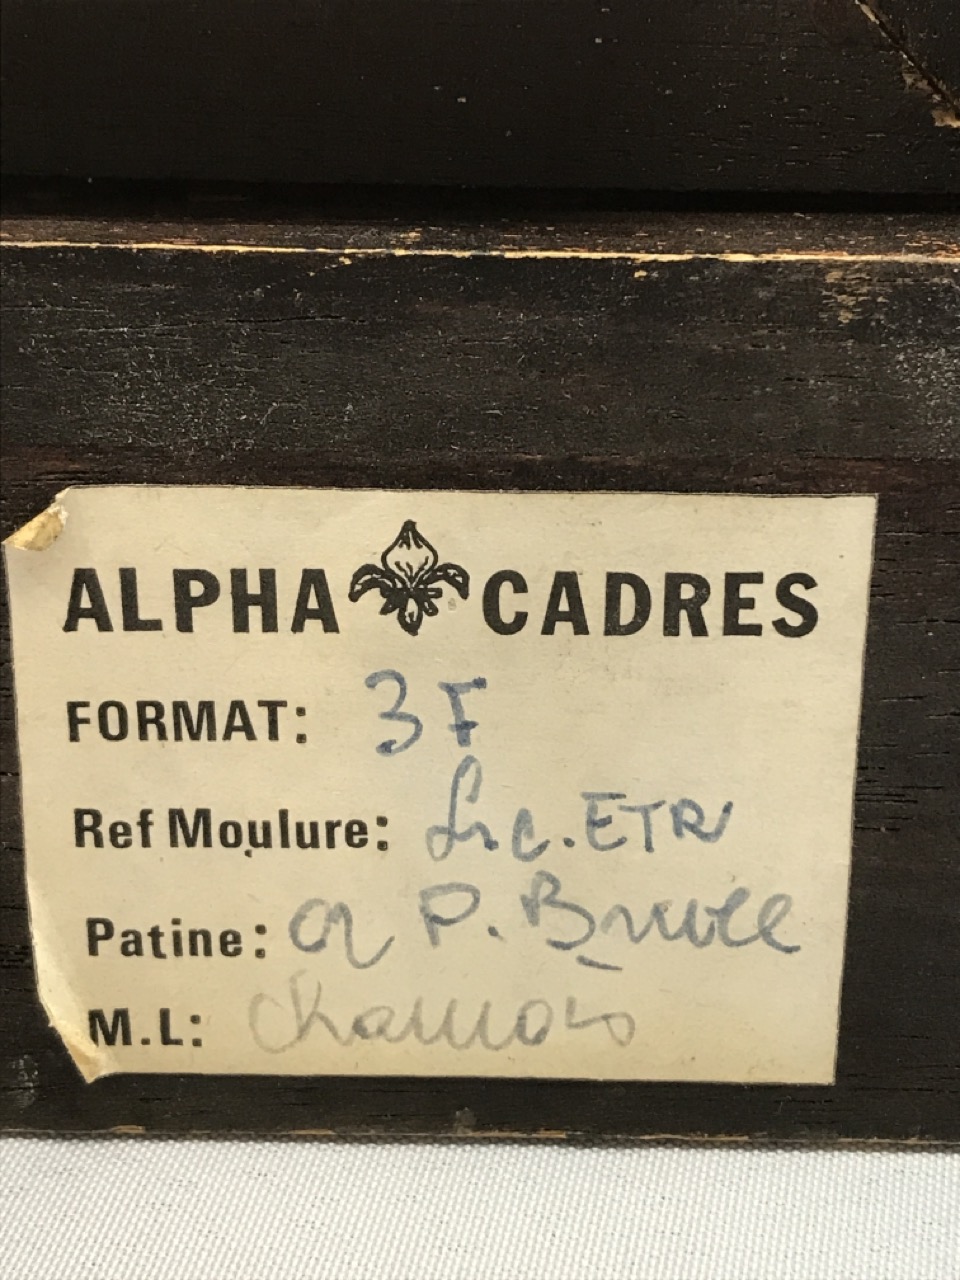 ALPHA CADRES
FORMAT: 3F
Ref Moulure: ETR
Patine: or P.
M.L: Chamois